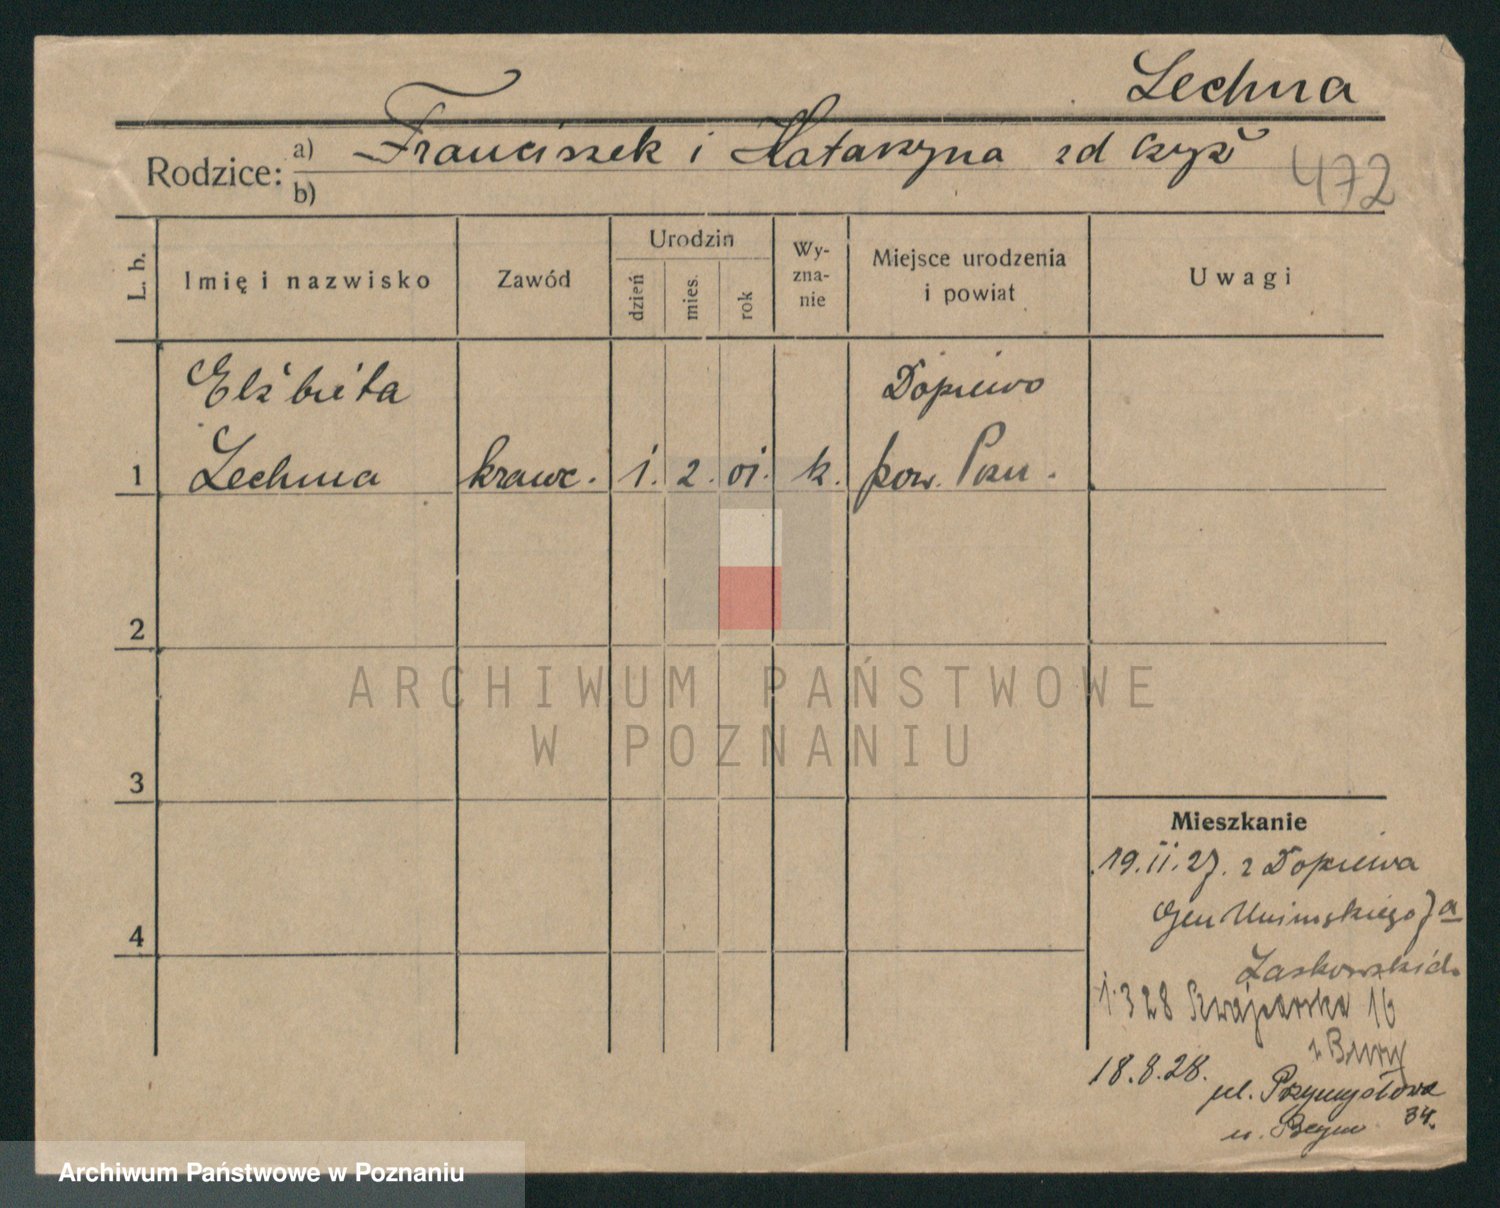 Lechna
Rodzice: a) Franciszek i Katarzyna zd Czyż
b)
472
L. b.
Imię i nazwisko
Zawód
Urodzin
dzień
mies.
rok
Wy-
zna-
nie
Miejsce urodzenia
i powiat
Uwagi
Elżbieta
Dopiewo
1 Lechna krawc. 1. 2. 01. k. pow. Pozn.
2
ARCHIWUM PAŃSTWOWE
W POZNANIU
3
Mieszkanie
19.II.27. z Dopiewa
Gen Umińskiego 7a
4
Laskowskich
1.3 28 Szwajcarska 16
18.8.28.
ul. Przemysłowa
34.
Archiwum Państwowe w Poznaniu